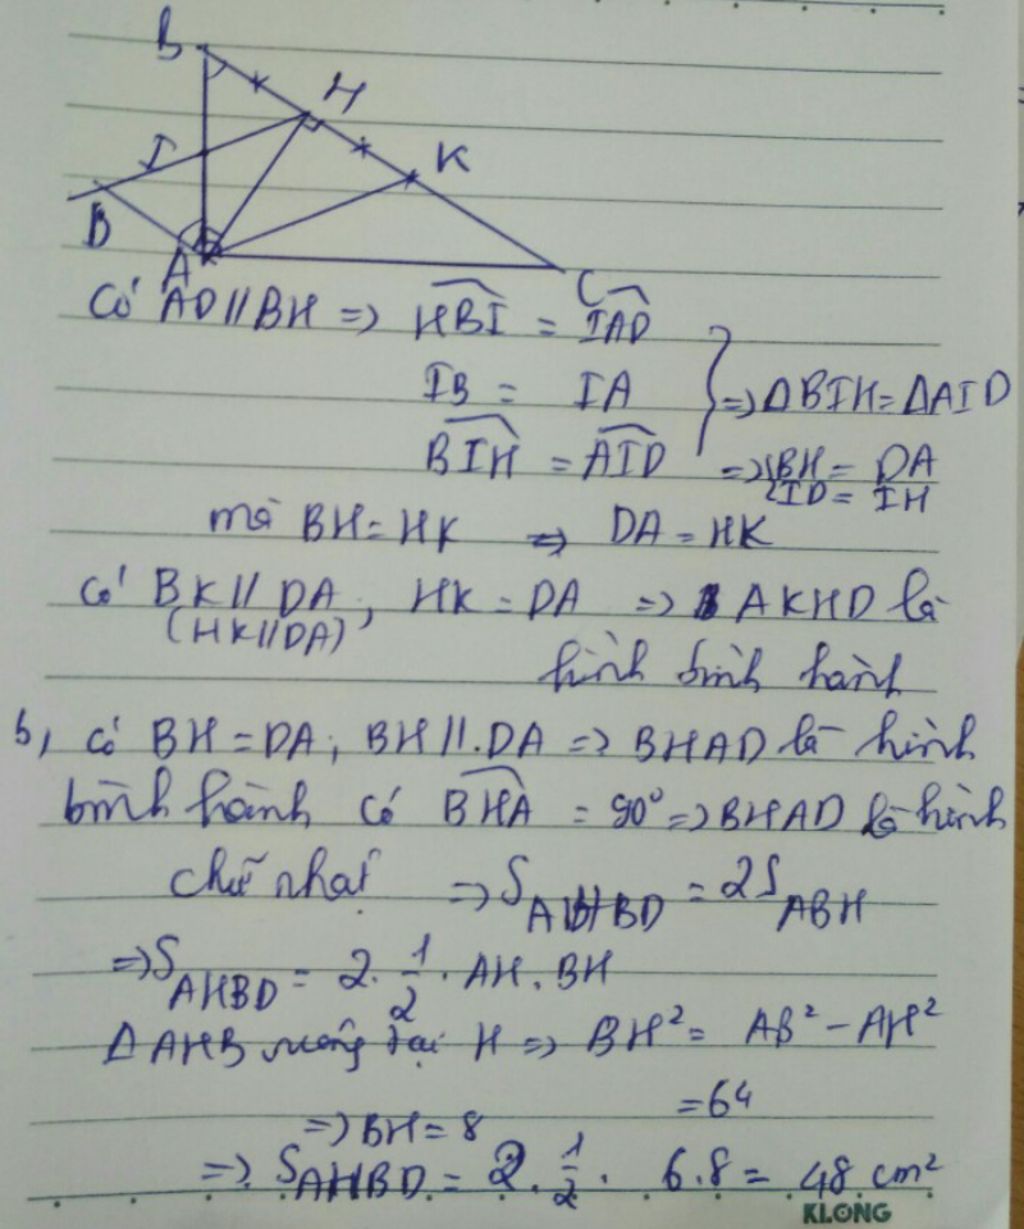 B
H
K
I
B
A
C
Có AD // BH => HBI = IAD
IB = IA
=> ΔBIH = ΔAID
BIH = AID
=> { BH = DA
ID = IH
mà BH = HK => DA = HK
có BK // DA, HK = DA => AKHD là
(HK // DA)
hình bình hành
b, có BH = DA; BH // DA => BHAD là hình
bình hành có BHA = 90° => BHAD là hình
chữ nhật => S AHBD = 2S ABH
=> S AHBD = 2. 1/2 . AH . BH
Δ AHB vuông tại H => BH² = AB² - AH²
= 64
=> BH = 8
=> S AHBD = 2. 1/2 . 6.8 = 48 cm²
KLONG